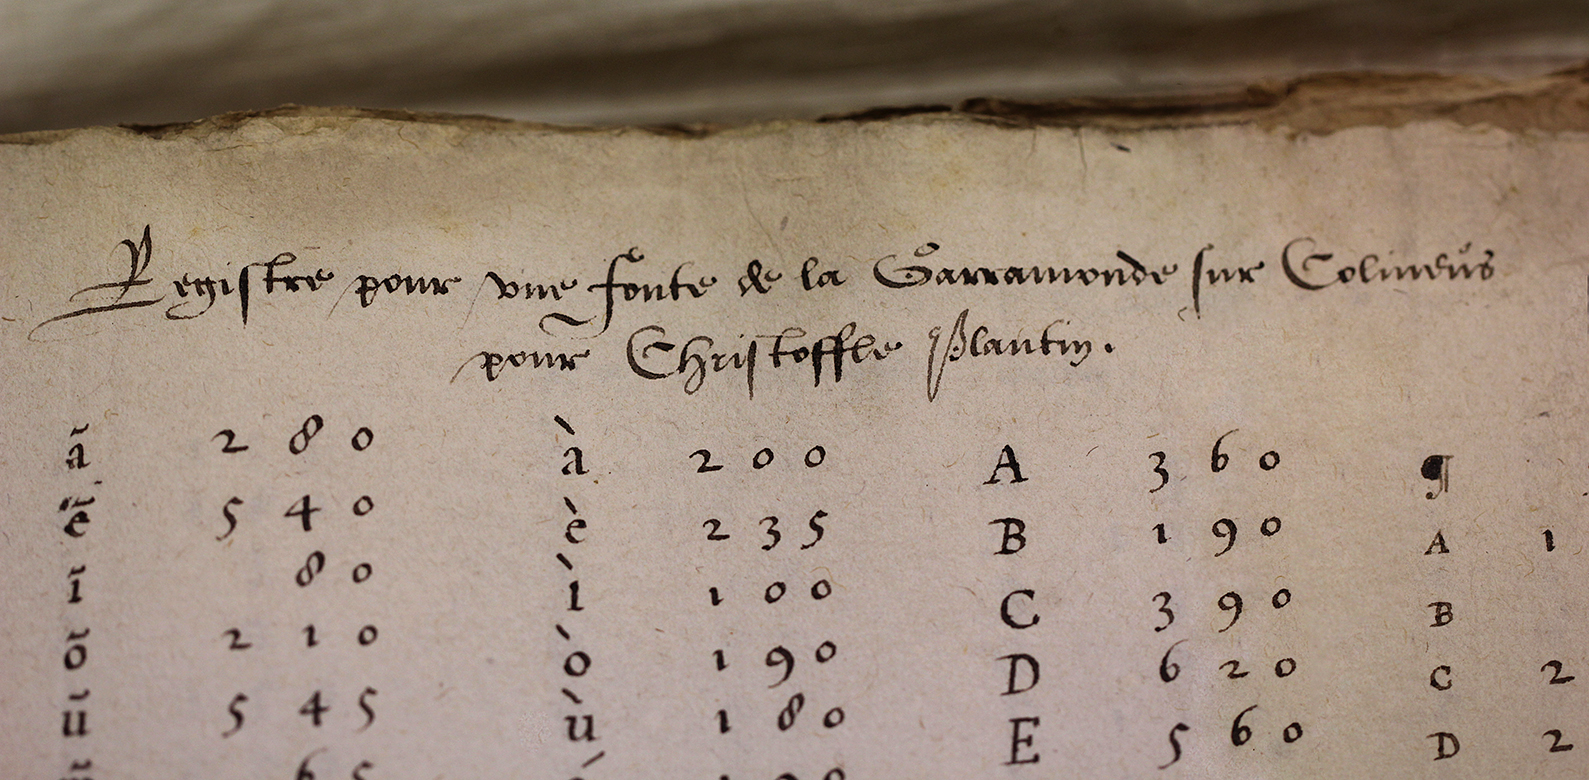 Registre pour vne fonte de la Garramonde sur Colineus
pour Christoffle Plantin.
ã 280 à 200 A 360 ¶
ẽ 540 è 235 B 190 ᴀ 1
ĩ 80 ì 100 C 390 ʙ
õ 210 ò 190 D 620 ᴄ 2
ũ 545 ù 180 E 560 ᴅ 2